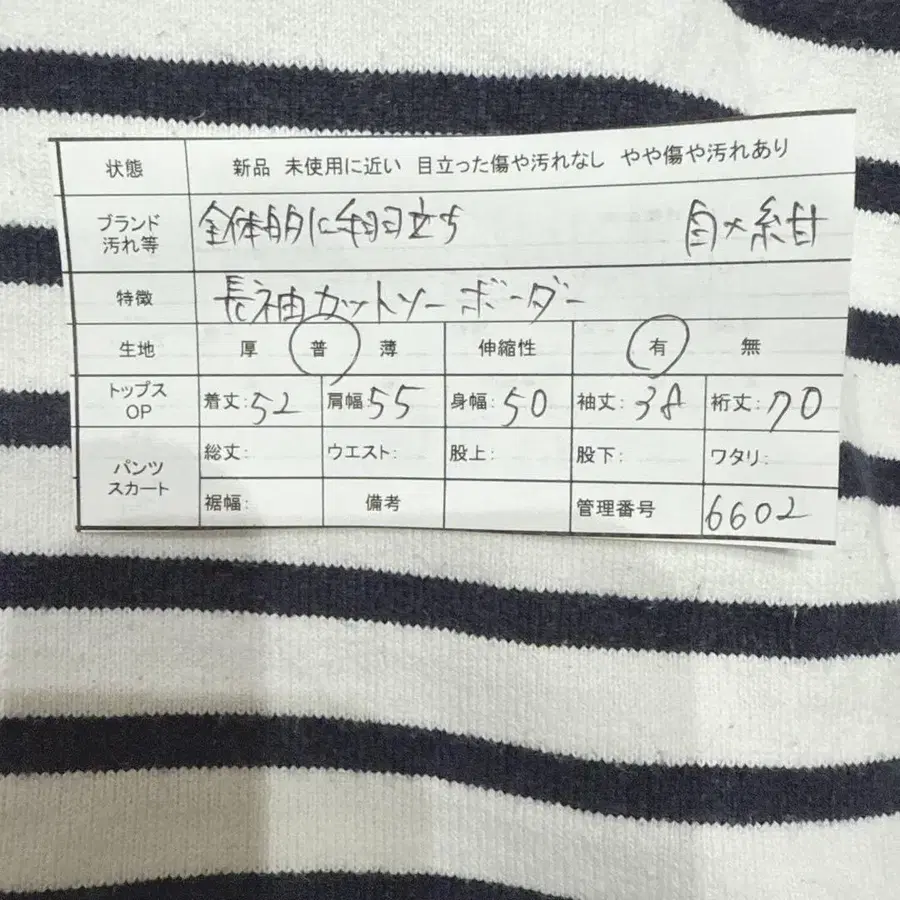 状態 新品 未使用に近い 目立った傷や汚れなし やや傷や汚れあり
ブランド 汚れ等 全体的に毛羽立ち 白×紺
特徴 長袖カットソー ボーダー
生地 厚 普 薄 伸縮性 有 無
トップス OP 着丈:52 肩幅55 身幅:50 袖丈:38 裄丈:70
パンツ スカート 総丈: ウエスト: 股上: 股下: ワタリ:
裾幅: 備考 管理番号 6602